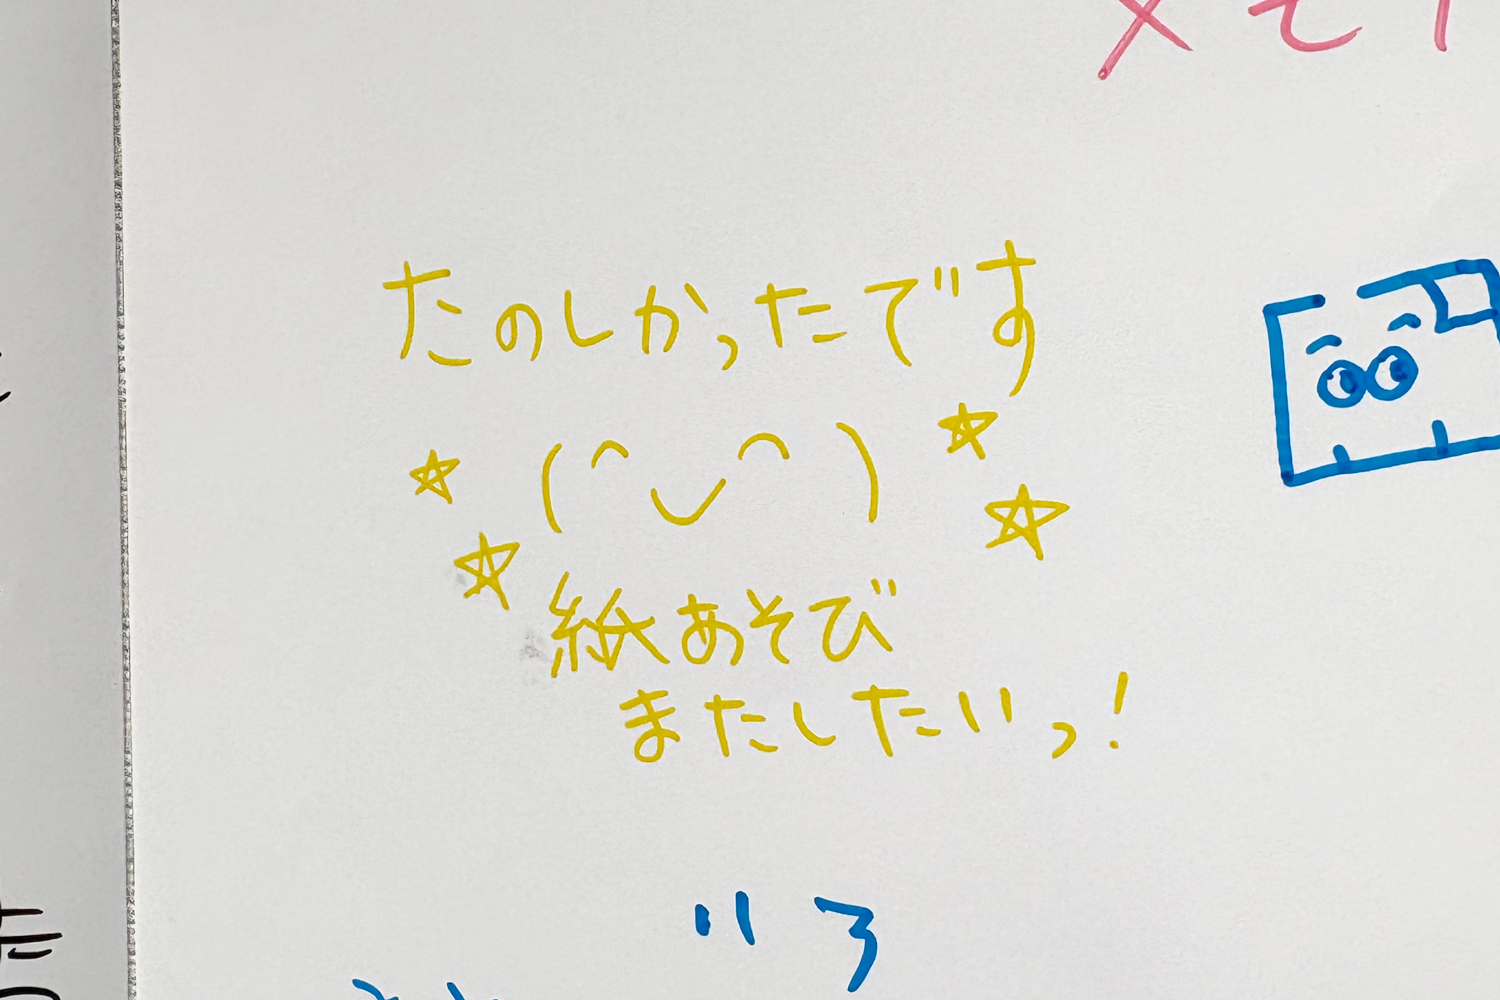 たのしかったです
(^◡^)
紙あそび
またしたいっ!